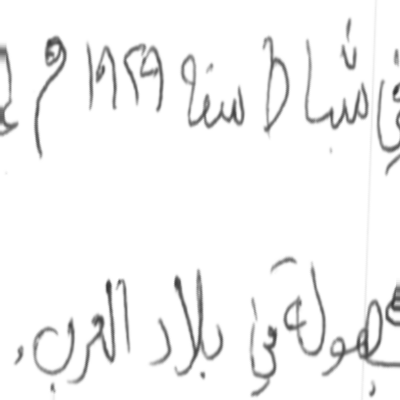 في شباط سنة ١٩٢٩ م
مجهولة في بلاد العرب.